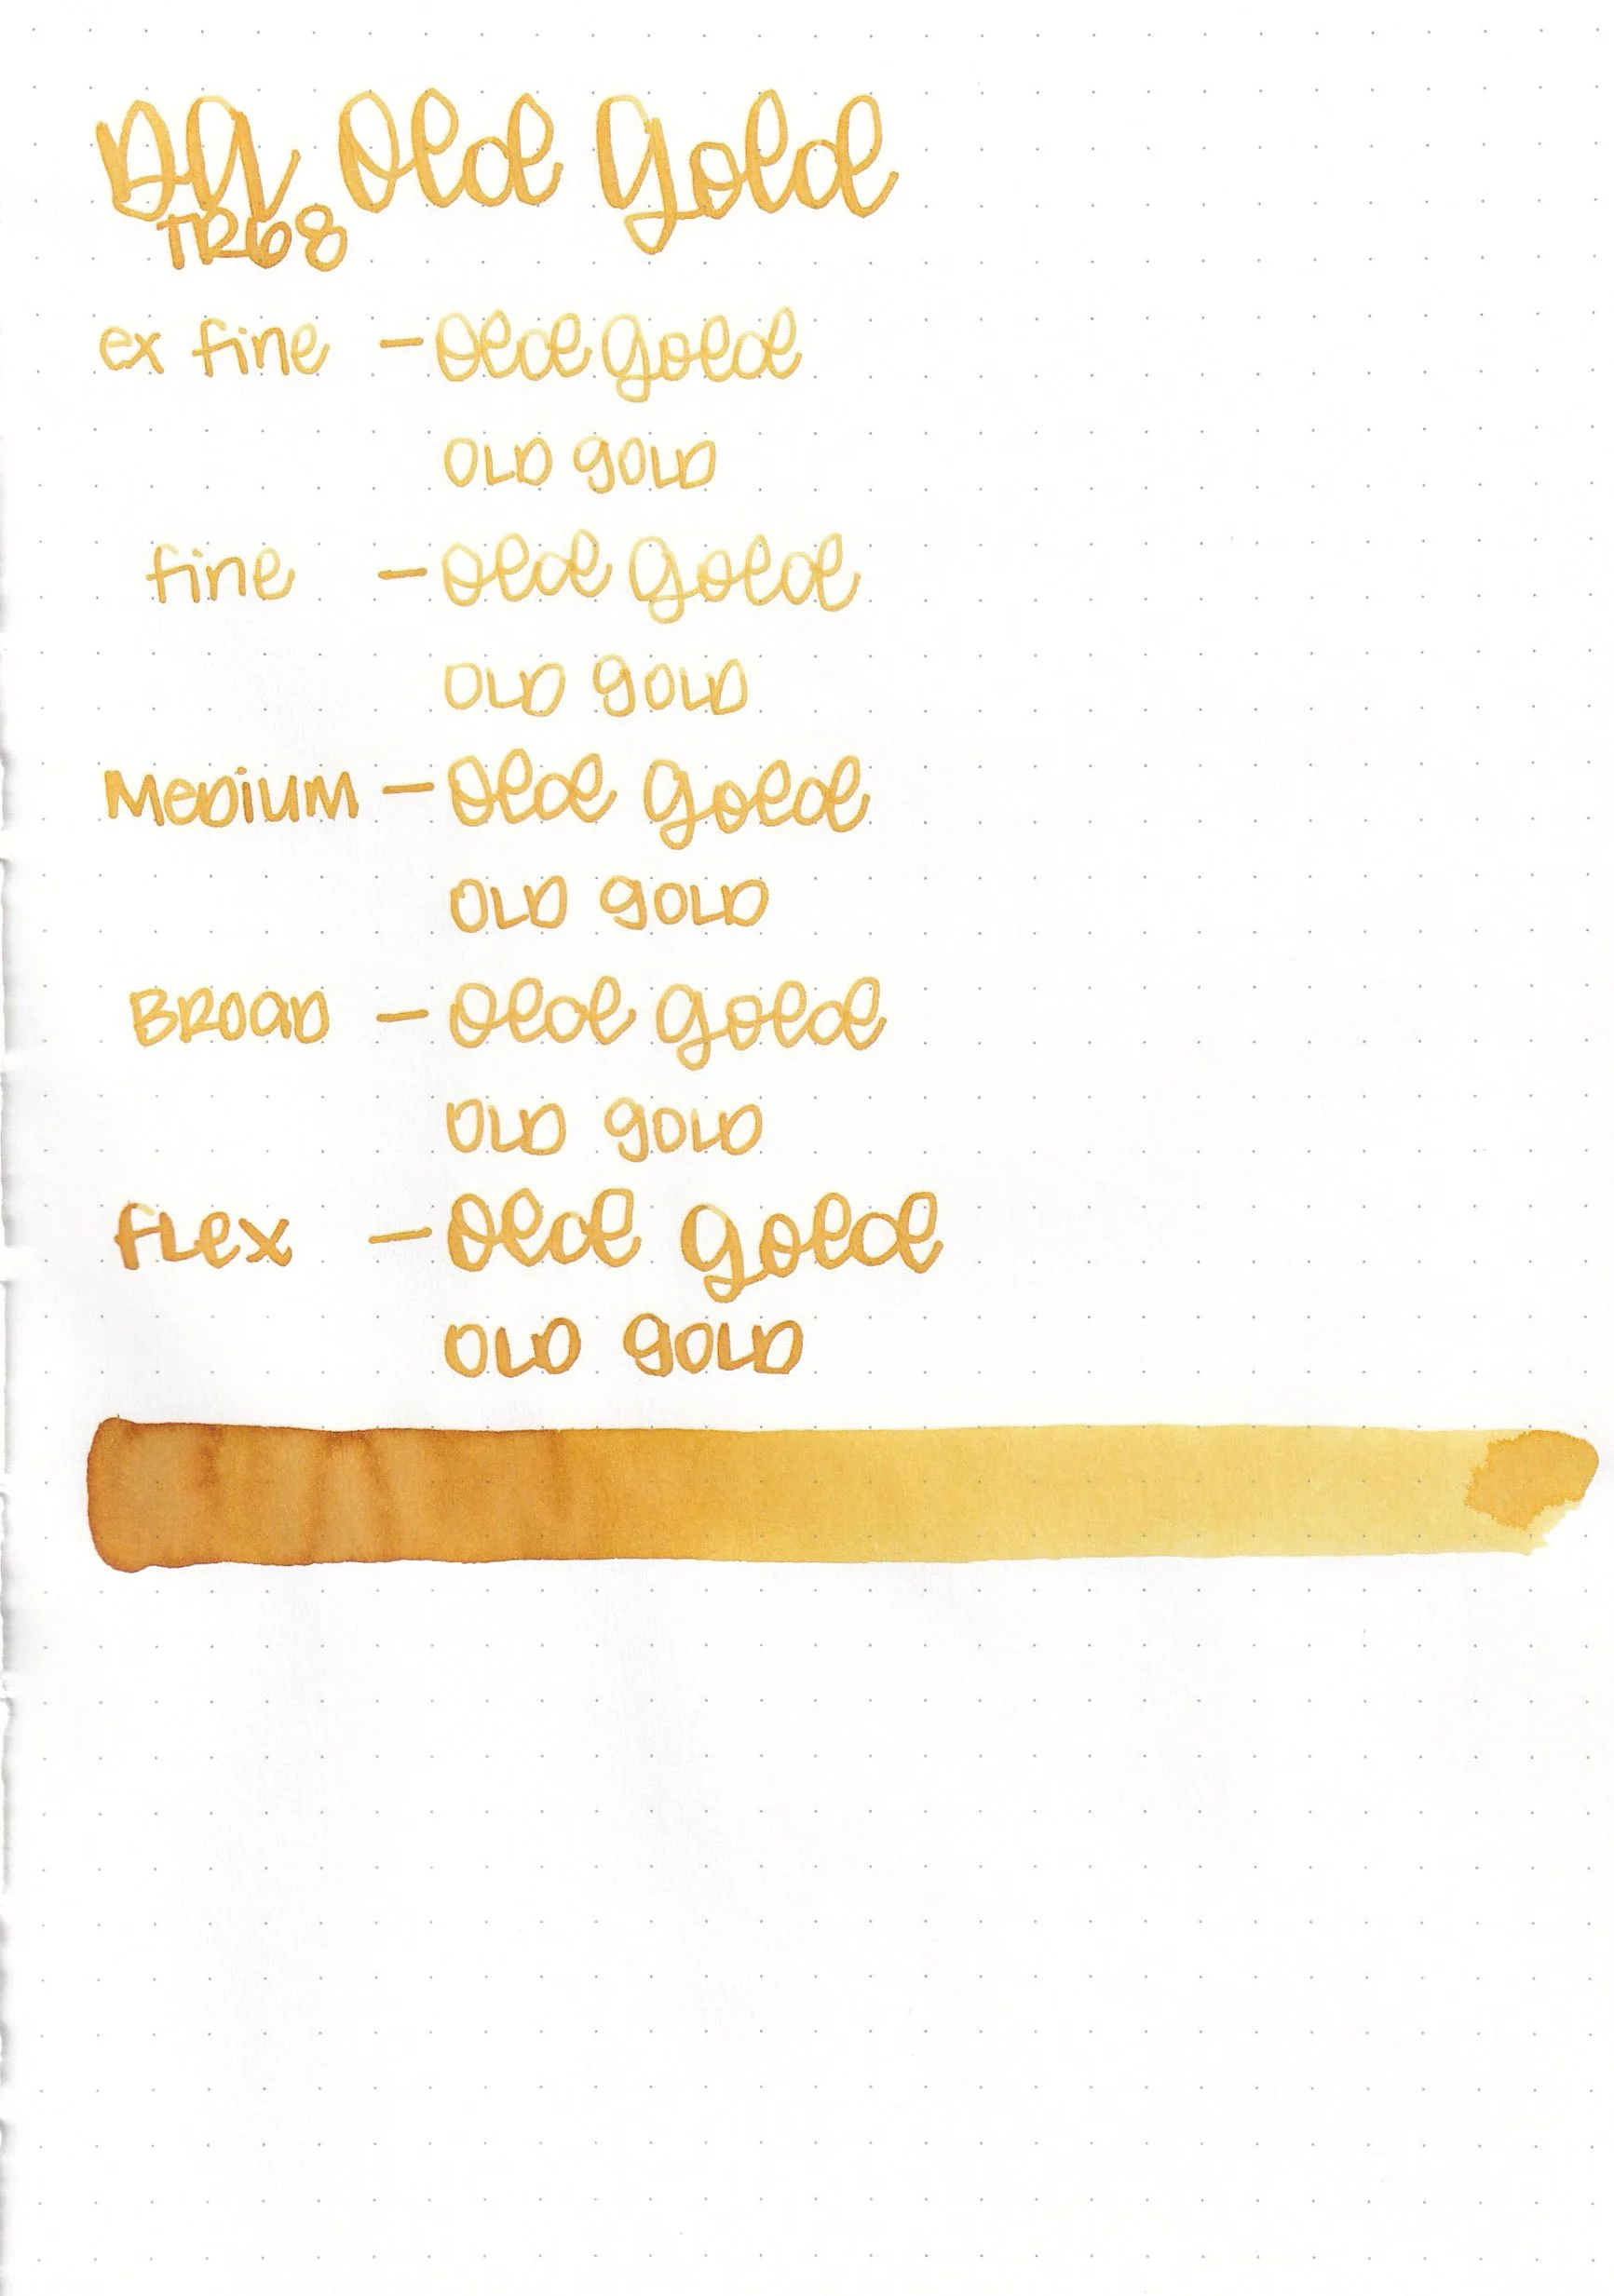 DA Old Gold
TR68
ex fine - Old Gold
OLD GOLD
fine - Old Gold
OLD GOLD
Medium - Old Gold
OLD GOLD
BROAD - Old Gold
OLD GOLD
fLex - Old Gold
OLD GOLD